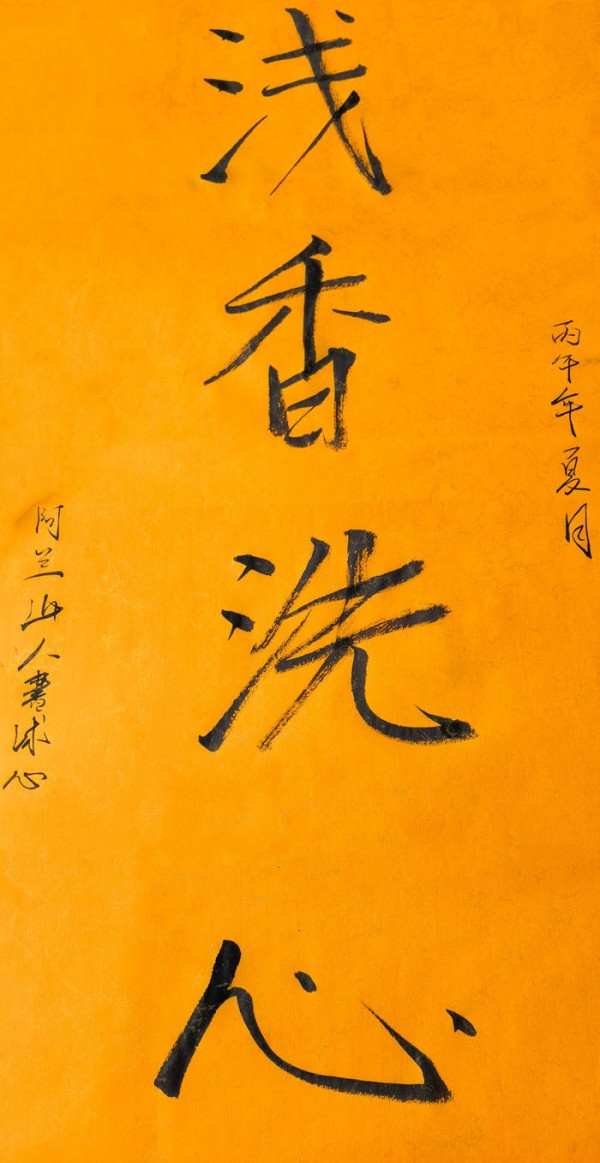 丙午年夏月
浅香洗心
阿兰山人书沐心